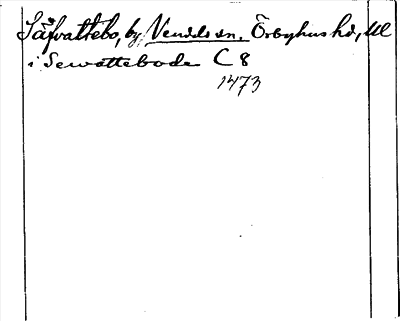 Säfvattebo, by, Vendels sn, Örbyhus hd, Ul
i Sewattebode C 8
1473